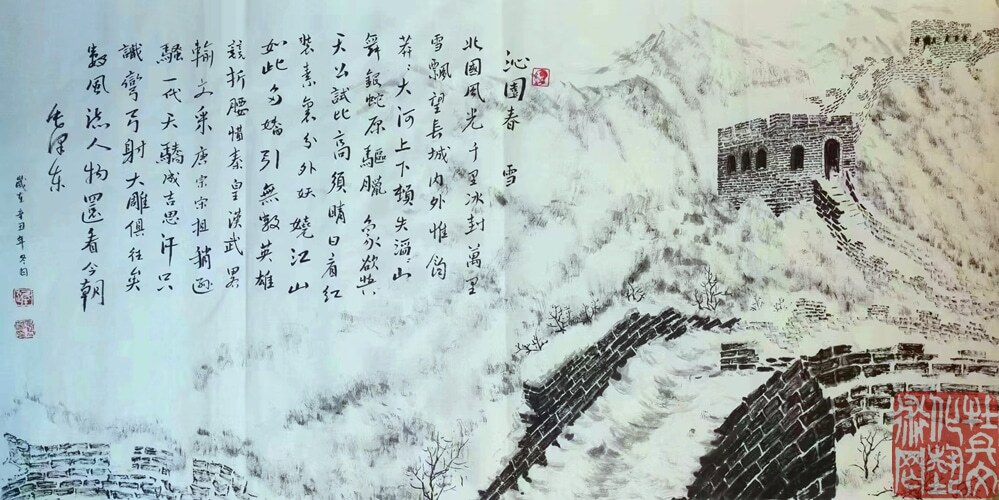 沁園春 雪
北國風光千里冰封萬里
雪飄望長城內外惟餘
莽〻大河上下頓失滔〻山
舞銀蛇原驅臘象欲與
天公試比高須晴日看紅
裝素裹分外妖嬈江山
如此多嬌引無數英雄
競折腰惜秦皇漢武畧
輸文采唐宗宋祖稍遜
騷一代天驕成吉思汗只
識彎弓射大雕俱往矣
數風流人物還看今朝
毛澤東
歲在辛丑年冬日